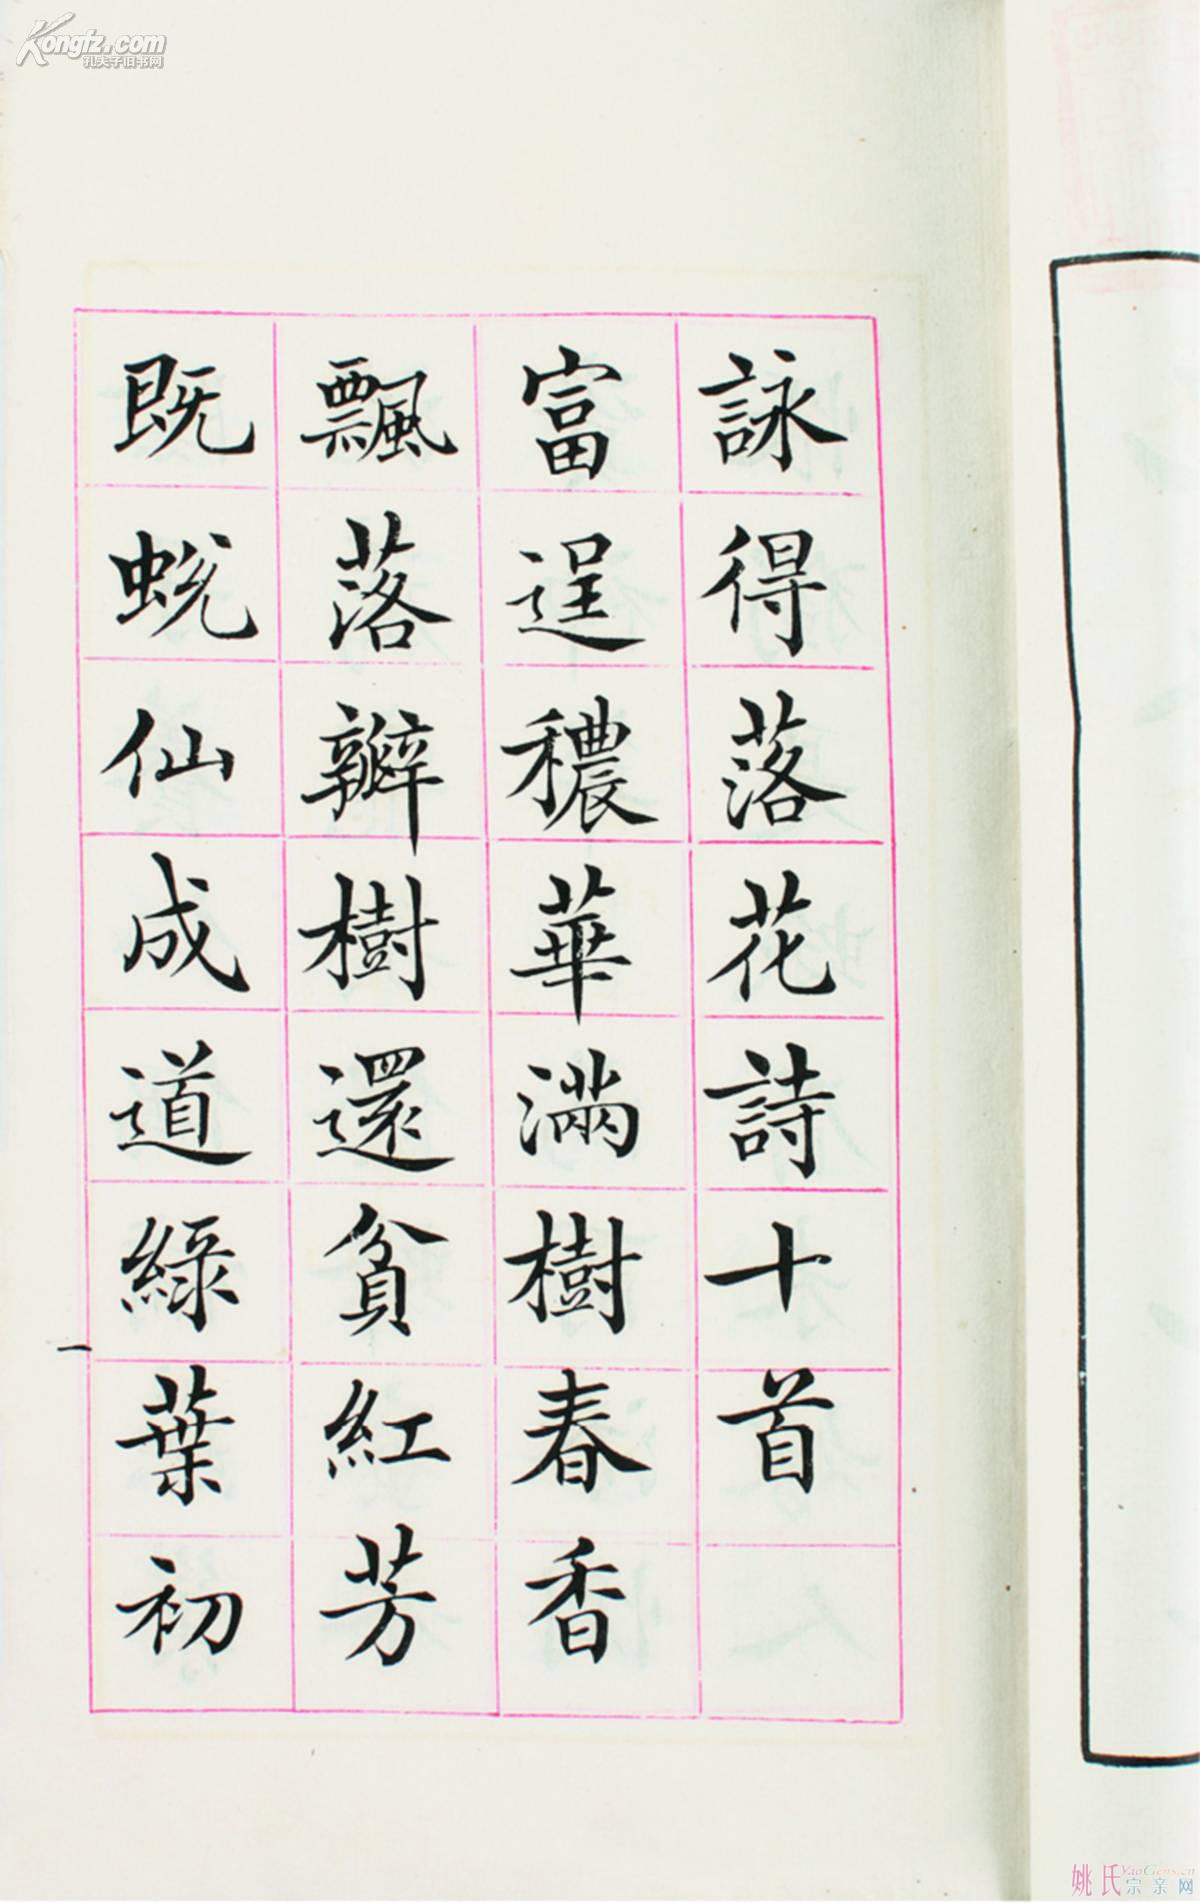 詠得落花詩十首
富逞穠華滿樹春香
飄落瓣樹還貧紅芳
既蛻仙成道綠葉初
一
Kongfz.com
孔夫子旧书网
姚氏宗亲网
YaoGens.cn